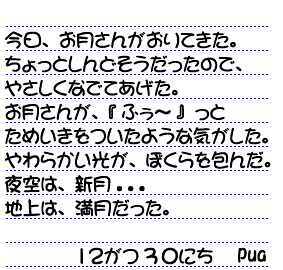 今日、お月さんがおいてきた。
ちょっとしんどそうだったので、
やさしくなでてあげた。
お月さんが、『ふぅ～』っと
ためいきをついたような気がした。
やわらかい光が、ぼくらを包んだ。
夜空は、新月...
地上は、満月だった。
12がつ30にち Pua